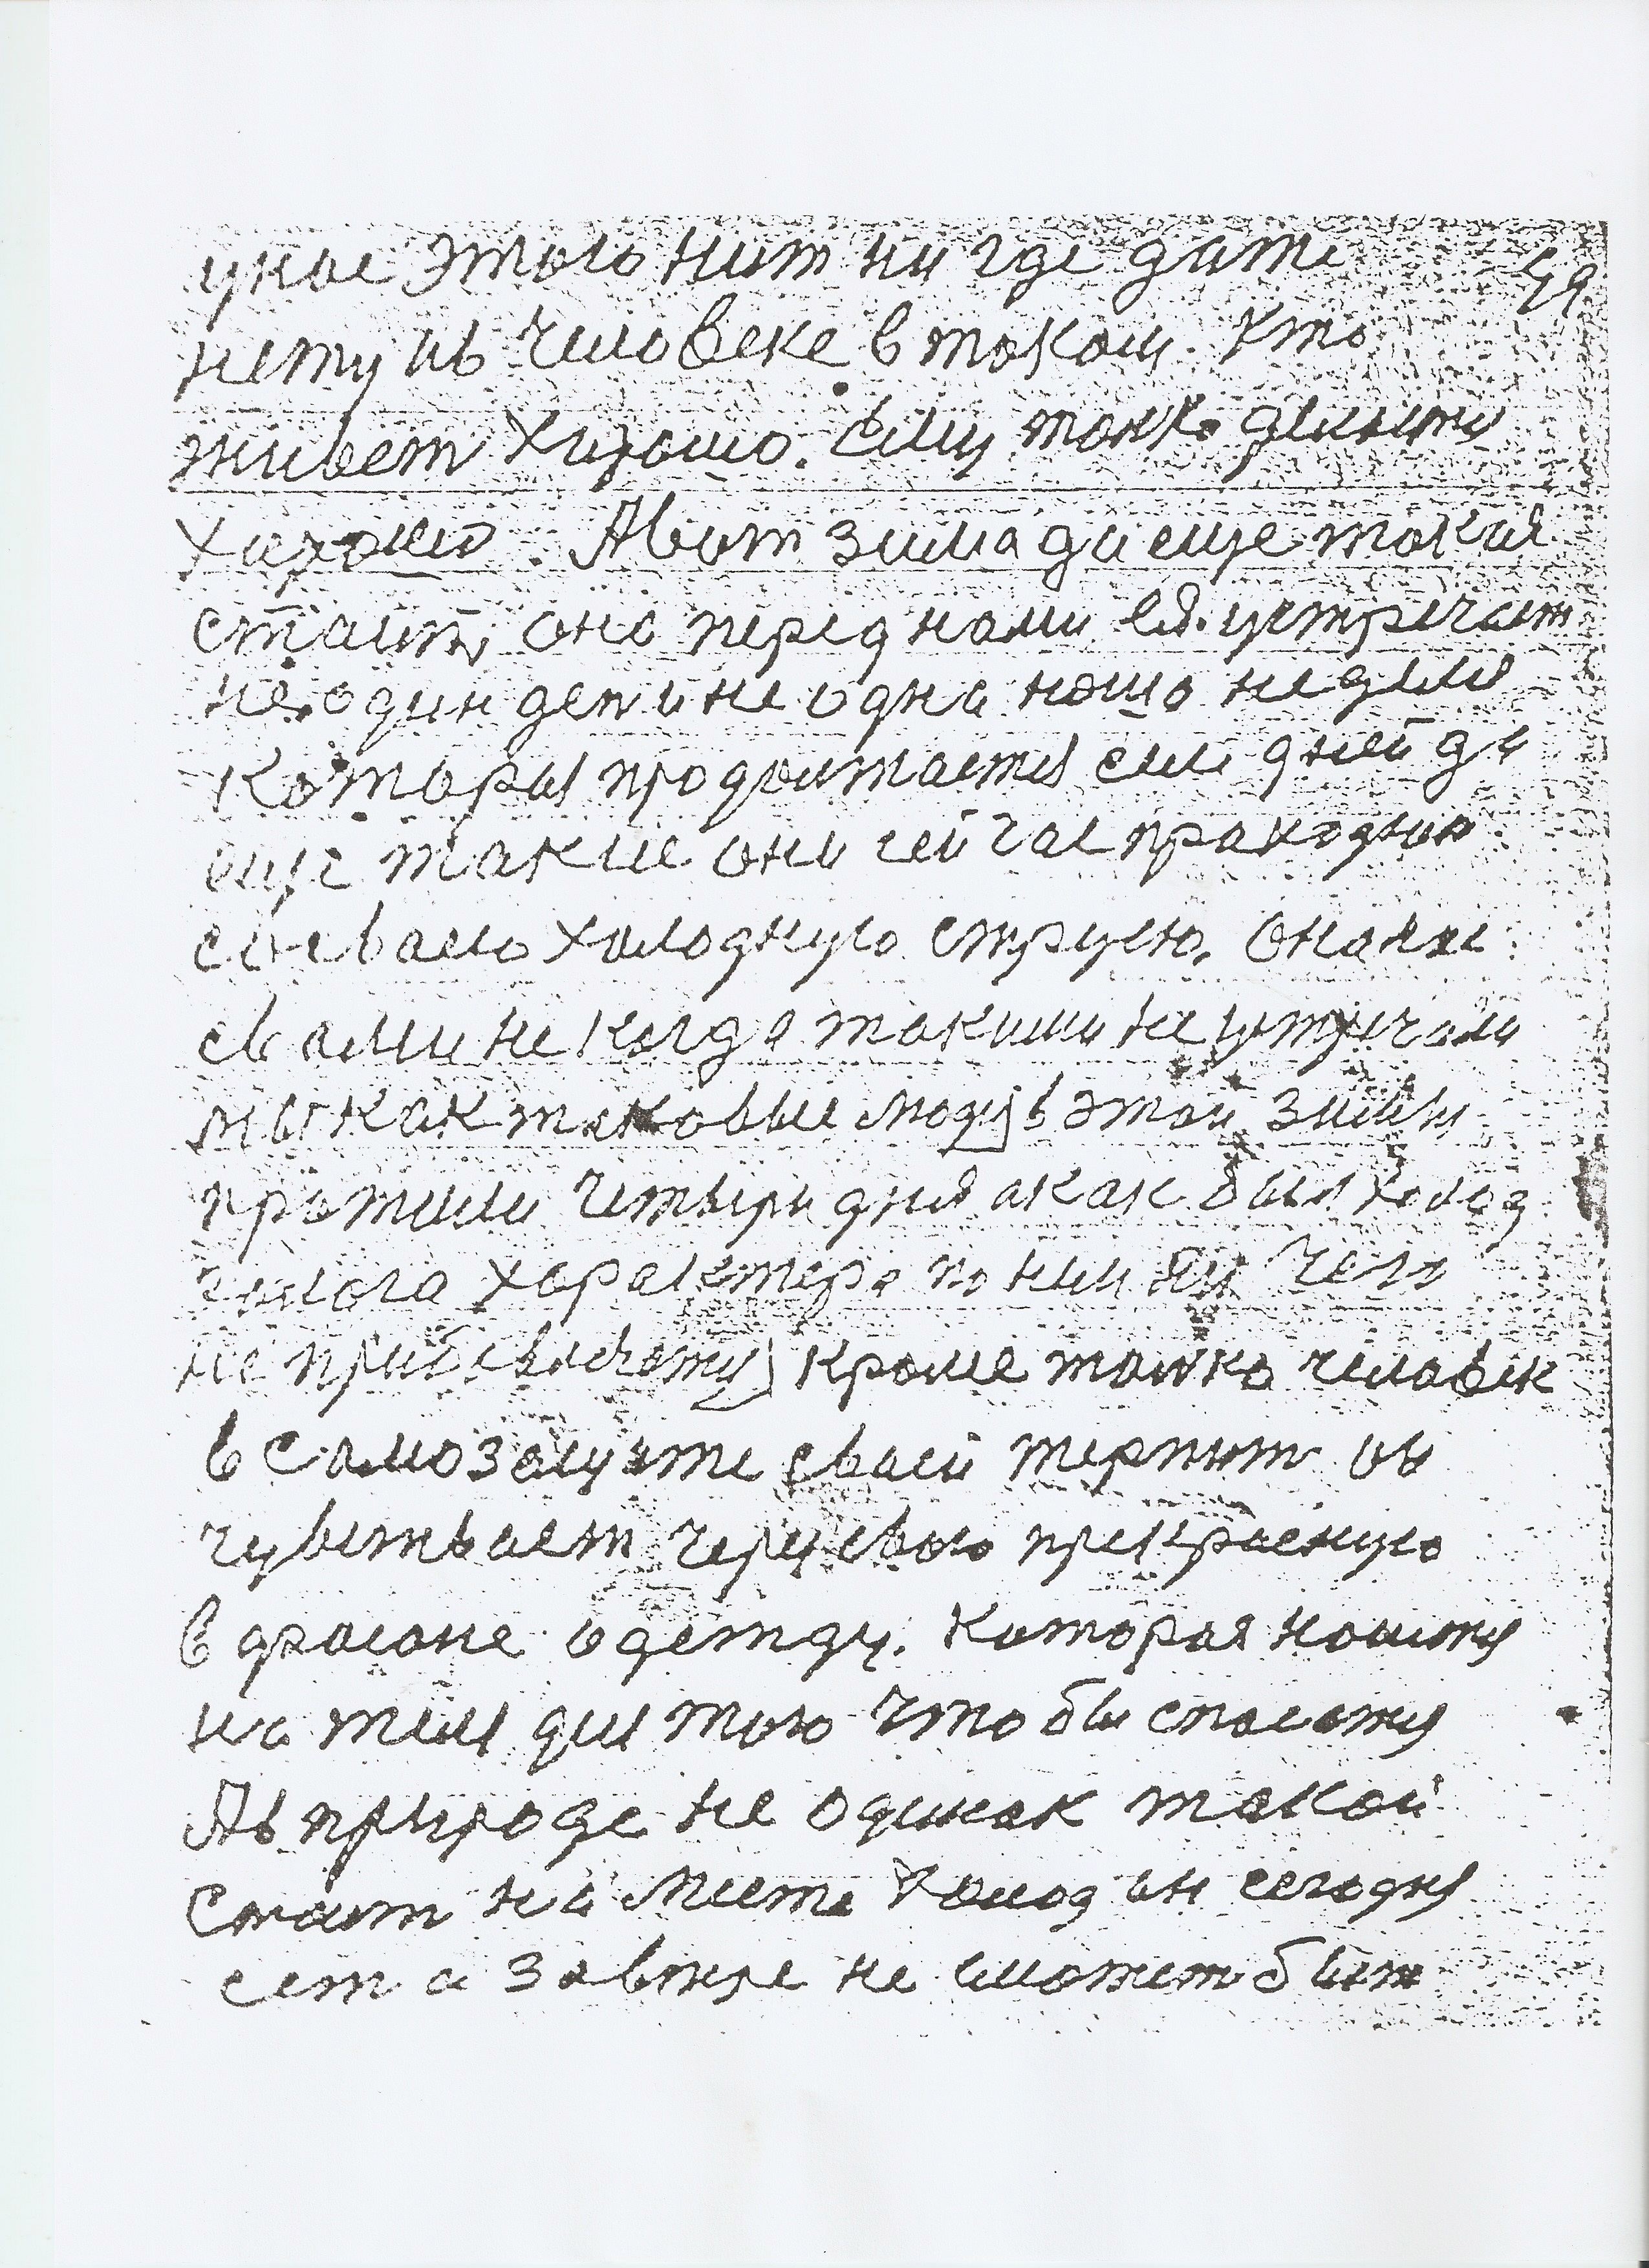 унас этого нит ни где дате 59
нету ив чиловеке в таком. Кто
живет хирошо. Ему толко диитя
хирошо. Авот зима да еще такая
стаит, она перед нами ее устричает
не один ден и не одна ноща неделя
которая продолитается семь дней да
еще такие они сейчас праходят
сосваею холодную струею. Она нас
свами не когда такими не устричали
мы как таковые люди в этой зимы
прожили читыри дня а как был холод
чилога характера по ним ни чего
не прибсвоячету кроме толко человек
в самозащите сваей терпит ов
чувствает через свою прекрасную
в фасоне одежду. Которая носитя
на тели для того чтобы спасатя
Ав природе не одинак такой
стаит на мисте холод ин сегодня
ест а завтре не сможет быт